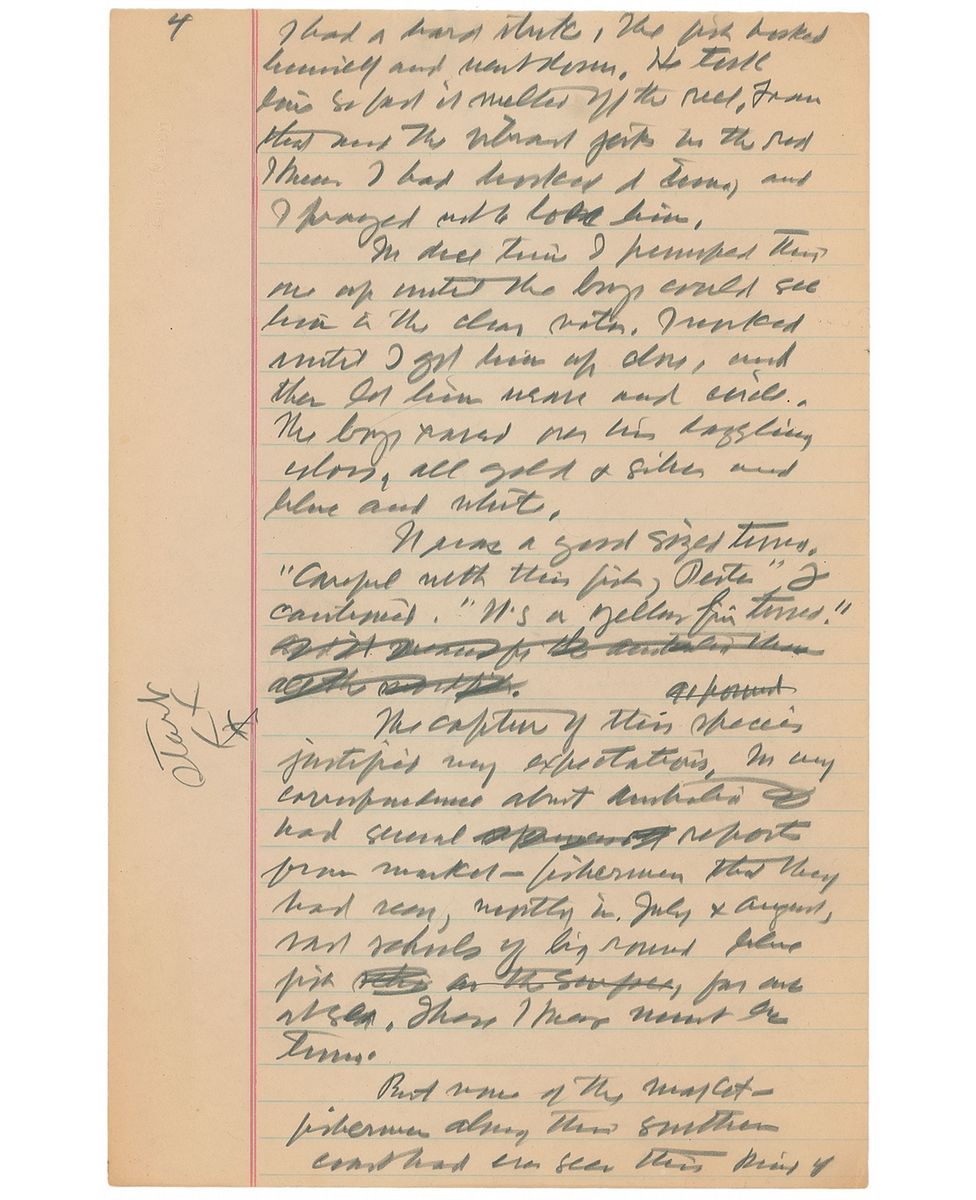 4
I had a hard strike, The fish hooked
himself and went down. He took
line so fast it melted off the reel. From
that and the vibrant jerks on the rod
I knew I had hooked a tuna, and
I prayed not to lose him.
In due time I pumped this
one up until the boys could see
him in the clear water. I worked
until I got him up close, and
then let him weave and circle.
The boys raved over his dazzling
colors, all gold & silver and
blue and white.
It was a good sized tuna.
"Careful with this fish, Peter" I
cautioned. "It's a yellow fin tuna."
the Australia than
all the
as found
The capture of this species
justified my expectations, In my
correspondence about Australia I
had several reports
from market-fishermen that they
had seen, mostly in July & August,
vast schools of big round blue
fish on the surface, far out
at sea. These I knew must be
tuna.
But none of the market-
fishermen along this southern
coast had ever seen this kind of
Start
Ex